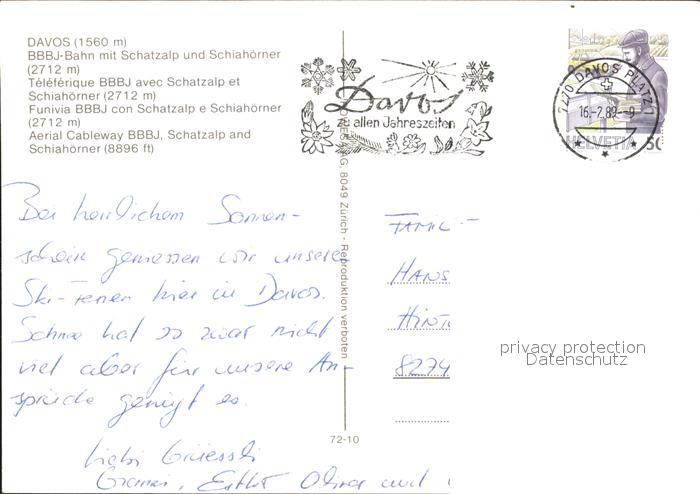 DAVOS (1560 m)
BBBJ-Bahn mit Schatzalp und Schiahörner
(2712 m)
Téléférique BBBJ avec Schatzalp et
Schiahörner (2712 m)
Funivia BBBJ con Schatzalp e Schiahörner
(2712 m)
Aerial Cableway BBBJ, Schatzalp and
Schiahörner (8896 ft)
Davos
zu allen Jahreszeiten
7270 DAVOS PLATZ 1
16.-2.89.-9
HELVETIA 50
AG, 8049 Zürich - Reproduktion verboten
Bei herrlichem Sonnen-
schein geniessen wir unsere
Ski-Ferien hier in Davos.
Schnee hat es zwar nicht
viel aber für unsere An-
sprüche genügt es.
Liebi Grüessli
Esther Oliver und
72-10
FAMIL
HANS
HINT
8274
privacy protection
Datenschutz